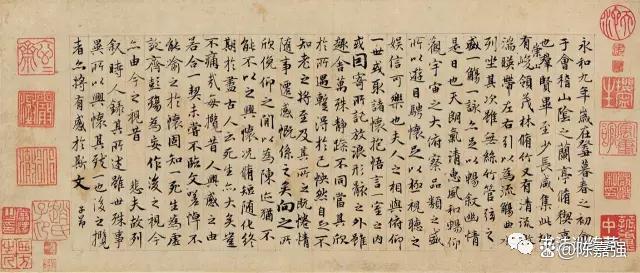 永和九年歲在癸丑暮春之初會
于會稽山陰之蘭亭脩稧事
也羣賢畢至少長咸集此地
有崇山峻領茂林脩竹又有清流激
湍暎帶左右引以為流觴曲水
列坐其次雖無絲竹管弦之
盛一觴一詠亦足以暢敘幽情
是日也天朗氣清惠風和暢仰
觀宇宙之大俯察品類之盛
所以遊目騁懷足以極視聽之
娛信可樂也夫人之相與俯仰
一世或取諸懷抱悟言一室之內
或因寄所託放浪形骸之外雖
趣舍萬殊靜躁不同當其欣
於所遇蹔得於己怏然自足不
知老之將至及其所之既惓情
隨事遷感慨係之矣向之所
欣俛仰之間以為陳迹猶不
能不以之興懷況脩短隨化終
期於盡古人云死生亦大矣豈
不痛哉每攬昔人興感之由
若合一契未嘗不臨文嗟悼不
能喻之於懷固知一死生為虛
誕齊彭殤為妄作後之視今
亦由今之視昔悲夫故列
敘時人錄其所述雖世殊事
異所以興懷其致一也後之攬
者亦將有感於斯文
子昂
@陈嘉强